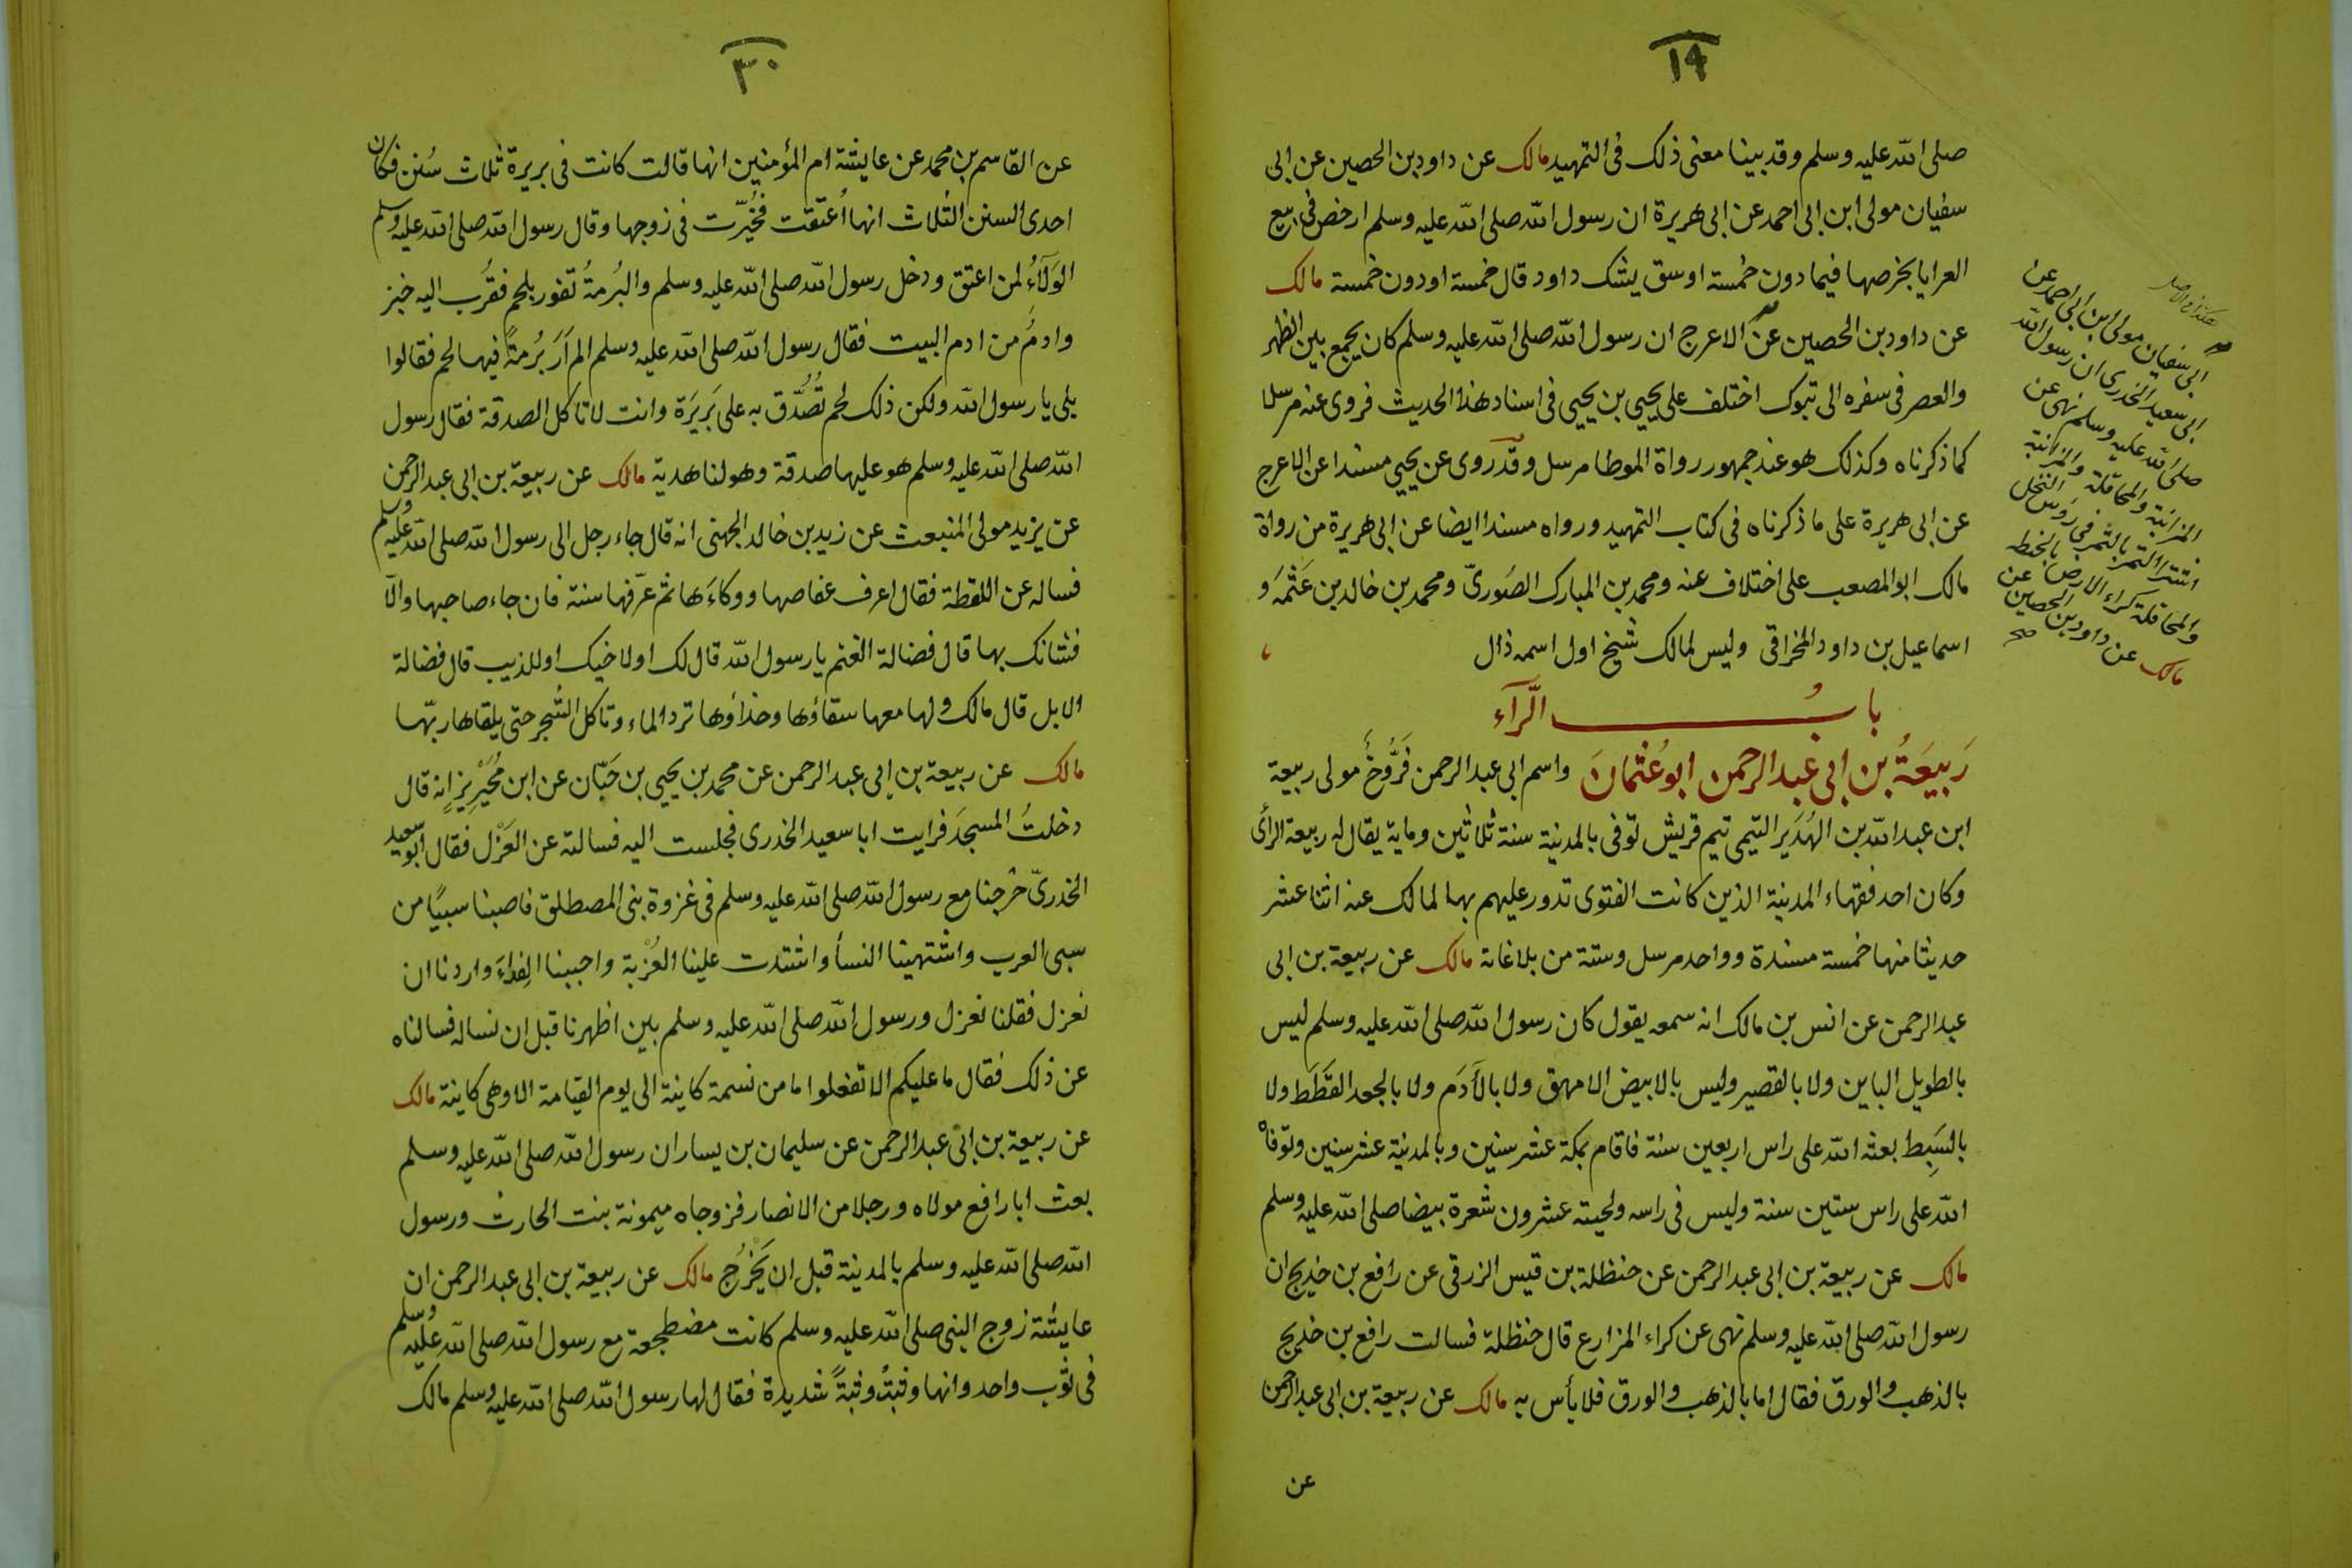 ١٩
صلى الله عليه وسلم وقد بينا معنى ذلك فى التمهيد مالك عن داود بن الحصين عن ابى
سفيان مولى ابن ابى احمد عن ابى هريرة ان رسول الله صلى الله عليه وسلم ارخص فى بيع
العرايا بخرصها فيما دون خمسة اوسق يشك داود قال خمسة او دون خمسة مالك
عن داود بن الحصين عن الاعرج ان رسول الله صلى الله عليه وسلم كان يجمع بين الظهر
والعصر فى سفره الى تبوك اختلف على يحيي بن يحيي فى اسناد هذا الحديث فروى عنه مرسلا
كما ذكرناه وكذلك هو عند جمهور رواة الموطا مرسل وقد روى عن يحيي مسندا عن الاعرج
عن ابى هريرة على ما ذكرناه فى كتاب التمهيد ورواه مسندا ايضا عن ابى هريرة من رواة
مالك ابو المصعب على اختلاف عنه ومحمد بن المبارك الصُورىّ ومحمد بن خالد بن عَثْمَه و
اسماعيل بن داود المخراقى وليس لمالك شيخ اول اسمه ذال
هكذا فى الاصل
ابى سفيان مولى ابن ابى احمد عن
ابى سعيد الخدرى ان رسول الله
صلى الله عليه وسلم نهى عن
المزابنة والمحاقلة والمزابنة
اشترا التمر بالثمر فى رؤس النخل
والمحاقلة كراء الارض بالحنطه
مالك عن داود بن الحصين عن
صح
بابُ الرَّآء
رَبيعَةُ بن ابى عبد الرحمن ابو عُثمانَ واسم ابى عبد الرحمن فَرُّوخَُ مولى ربيعة
ابن عبد الله بن الهُدَير التيمى تيم قريش توفى بالمدينة سنة ثلاثين وماية يقال له ربيعة الرأى
وكان احد فقهاء المدينة الذين كانت الفتوى تدور عليهم بها لمالك عنه اثنا عشر
حديثا منها خمسة مسندة وواحد مرسل وستة من بلاغاته مالك عن ربيعة بن ابى
عبد الرحمن عن انس بن مالك انه سمعه يقول كان رسول الله صلى الله عليه وسلم ليس
بالطويل الباين ولا بالقصير وليس بالابيض الامهق ولا بالأدَم ولا بالجعد القَطَط ولا
بالسَبِط بعثه الله على راس اربعين سنة فاقام بمكة عشر سنين وبالمدينة عشر سنين وتوفاه
الله على راس ستين سنة وليس فى راسه ولحيته عشرون شعرة بيضا صلى الله عليه وسلم
مالك عن ربيعة بن ابى عبد الرحمن عن حنظلة بن قيس الزرقى عن رافع بن خديج ان
رسول الله صلى الله عليه وسلم نهى عن كراء المزارع قال حنظلة فسالت رافع بن خديج
بالذهب والورق فقال اما بالذهب والورق فلا بأس به مالك عن ربيعة بن ابى عبد الرحمن
عن
٣٠
عن القاسم بن محمد عن عايشة ام المؤمنين انها قالت كانت فى بريرة ثلاث سُنن فكان
احدى السنن الثلاث انها أعتقت فخُيّرت فى زوجها وقال رسول الله صلى الله عليه وسلم
الوَلآءُ لمن اعتق ودخل رسول الله صلى الله عليه وسلم والبُرمةُ تفور بلحم فقُرب اليه خبز
وادمٌ من ادم البيت فقال رسول الله صلى الله عليه وسلم الم اَرَ بُرمةً فيها لحم فقالوا
بلى يا رسول الله ولكن ذلك لحم تُصُدّق به على بَريَرة وانت لا تاكل الصدقة فقال رسول
الله صلى الله عليه وسلم هو عليها صدقة وهو لنا هدية مالك عن ربيعة بن ابى عبد الرحمن
عن يزيد مولى المنبعث عن زيد بن خالد الجهنى انه قال جاء رجل الى رسول الله صلى الله عليه وسلم
فساله عن اللقطة فقال اعرف عفاصها ووكاءَها ثم عرّفها سنة فان جاء صاحبها والّا
فشانك بها قال فضالة الغنم يا رسول الله قال لك او لاخيك او للذيب قال فضالة
الابل قال مالك ولها معها سقاؤها وحذاؤها ترد الماء وتاكل الشجر حتى يلقاها ربّها
مالك عن ربيعة بن ابى عبد الرحمن عن محمد بن يحيي بن حَبّان عن ابن مُحَيْرِيز انه قال
دخلتُ المسجدَ فرايت ابا سعيد الخدرى فجلست اليه فسالته عن العَزْل فقال ابو سعيد
الخدرىّ خرجنا مع رسول الله صلى الله عليه وسلم فى غزوة بنى المصطلق فاصبنا سبيًا من
سبى العرب واشتهينا النسأ واشتدت علينا العُزْبة واحببنا الفِداءَ واردنا ان
نعزل فقلنا نعزل ورسول الله صلى الله عليه وسلم بين اظهرنا قبل ان نساله فسالناه
عن ذلك فقال ما عليكم الا تفعلوا ما من نسمة كاينة الى يوم القيامة الا وهى كاينة مالك
عن ربيعة بن ابى عبد الرحمن عن سليمان بن يسار ان رسول الله صلى الله عليه وسلم
بعث ابا رافع مولاه ورجلا من الانصار فزوجاه ميمونة بنت الحارث ورسول
الله صلى الله عليه وسلم بالمدينة قبل ان يَخْرُج مالك عن ربيعة بن ابى عبد الرحمن ان
عايشة زوج النبى صلى الله عليه وسلم كانت مضطجعة مع رسول الله صلى الله عليه وسلم
فى ثوب واحد وانها وثبتْ وثبةً شديدة فقال لها رسول الله صلى الله عليه وسلم مالك